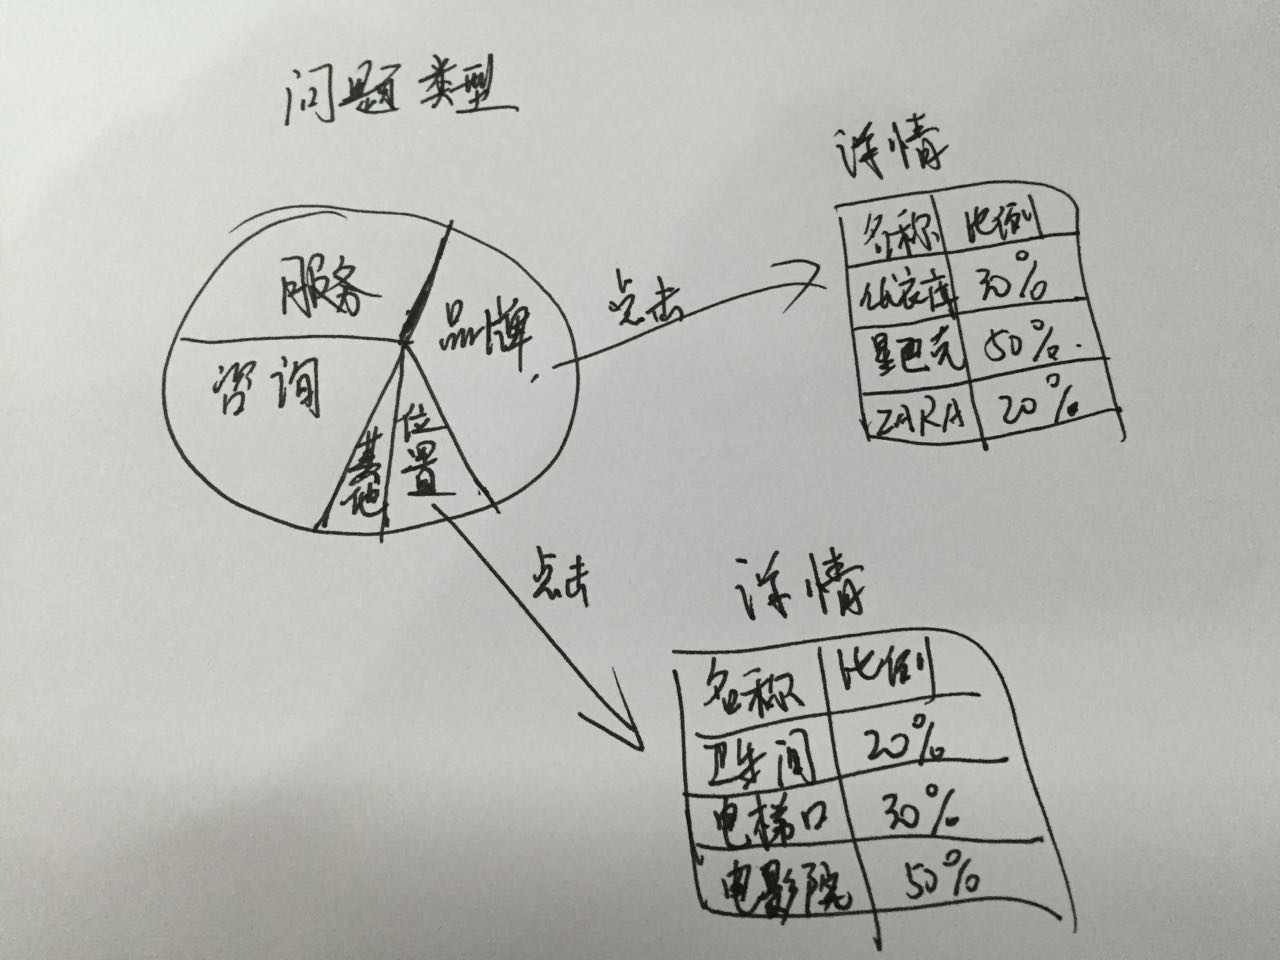 问题类型
服务
品牌
咨询
其他
位置
点击
详情
名称 比例
优衣库 30%
星巴克 50%
ZARA 20%
点击
详情
名称 比例
卫生间 20%
电梯口 30%
电影院 50%